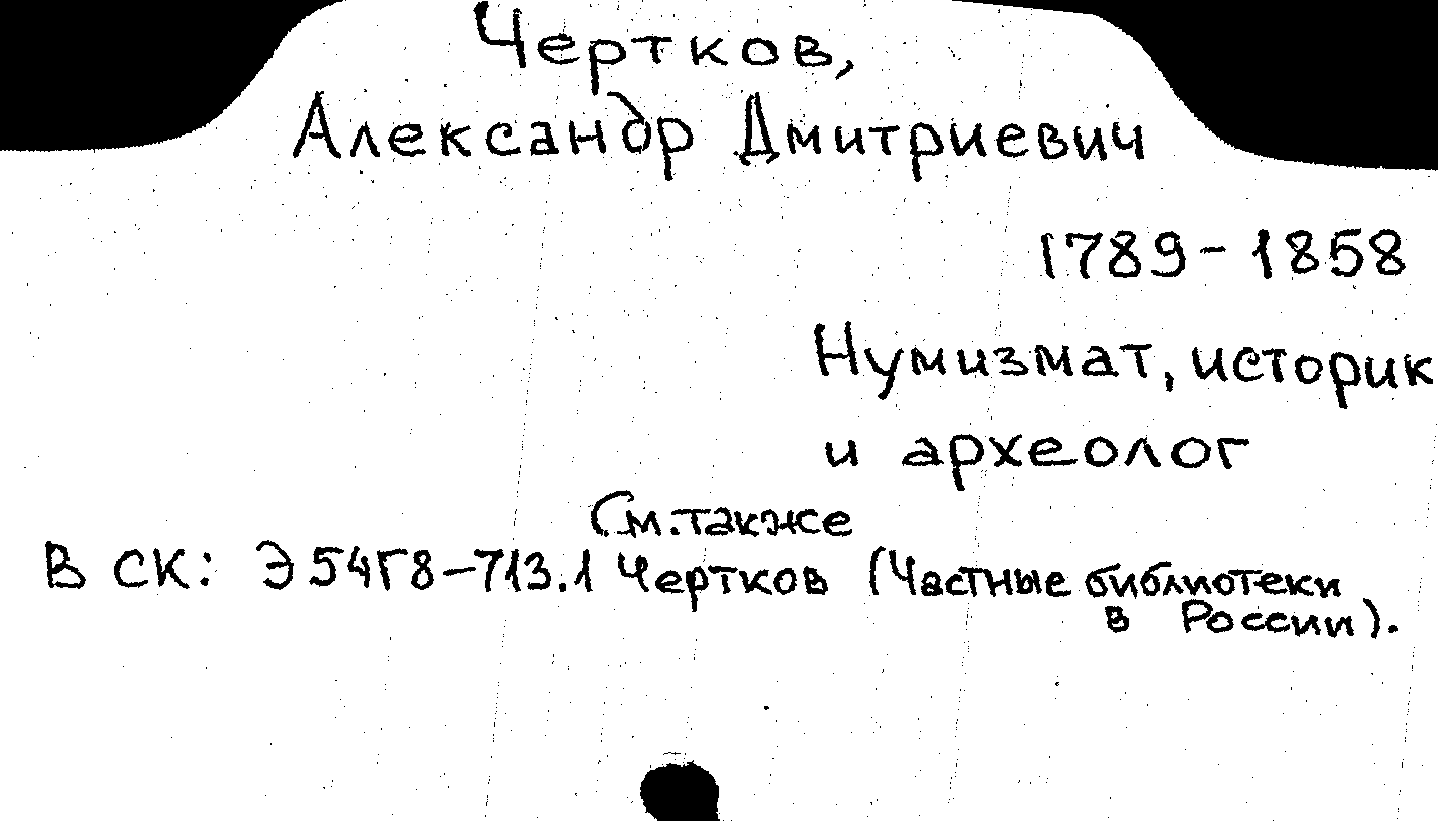 Чертков,
Александр Дмитриевич
1789-1858
Нумизмат, историк
и археолог
См. также
В СК: Э54Г8-713.1 Чертков (Частные библиотеки
в России).